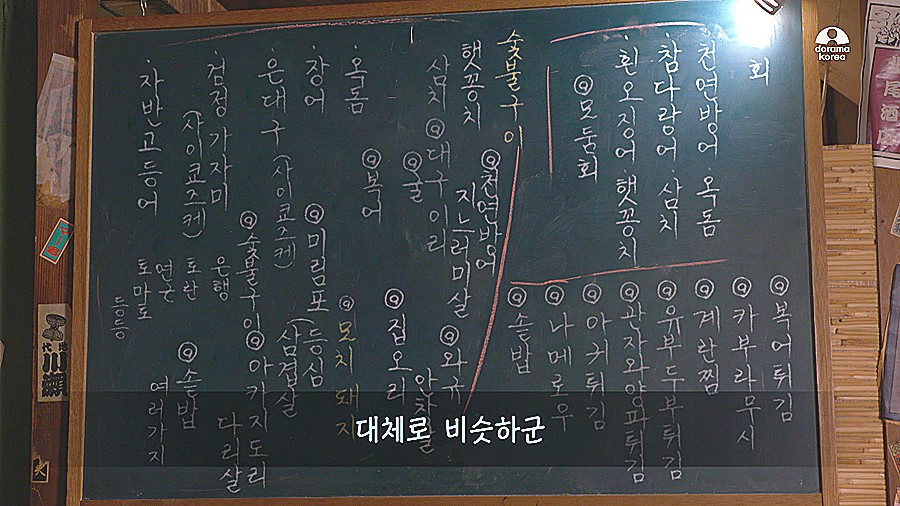 dorama korea
회
천연방어 옥돔
·참다랑어 ·삼치
·흰오징어 햇꽁치
◎모둠회
◎복어튀김
◎카부라무시
◎계란찜
◎유부두부튀김
◎관자와양파튀김
◎아귀튀김
◎나메로우
◎솥밥
숯불구이
햇꽁치
◎천연방어
지느러미살
삼치
◎대구이리
◎굴
◎와규
·옥돔
◎복어
◎집오리
·장어
◎미림포
◎모치돼지
(등심
삼겹살
·은대구
(사이쿄즈케)
◎아카지도리
다리살
·검정가자미
(사이쿄즈케)
◎숯불구이
은행
토란
연근
토마토
등등
·자반고등어
◎솥밥
여러가지
대체로 비슷하군